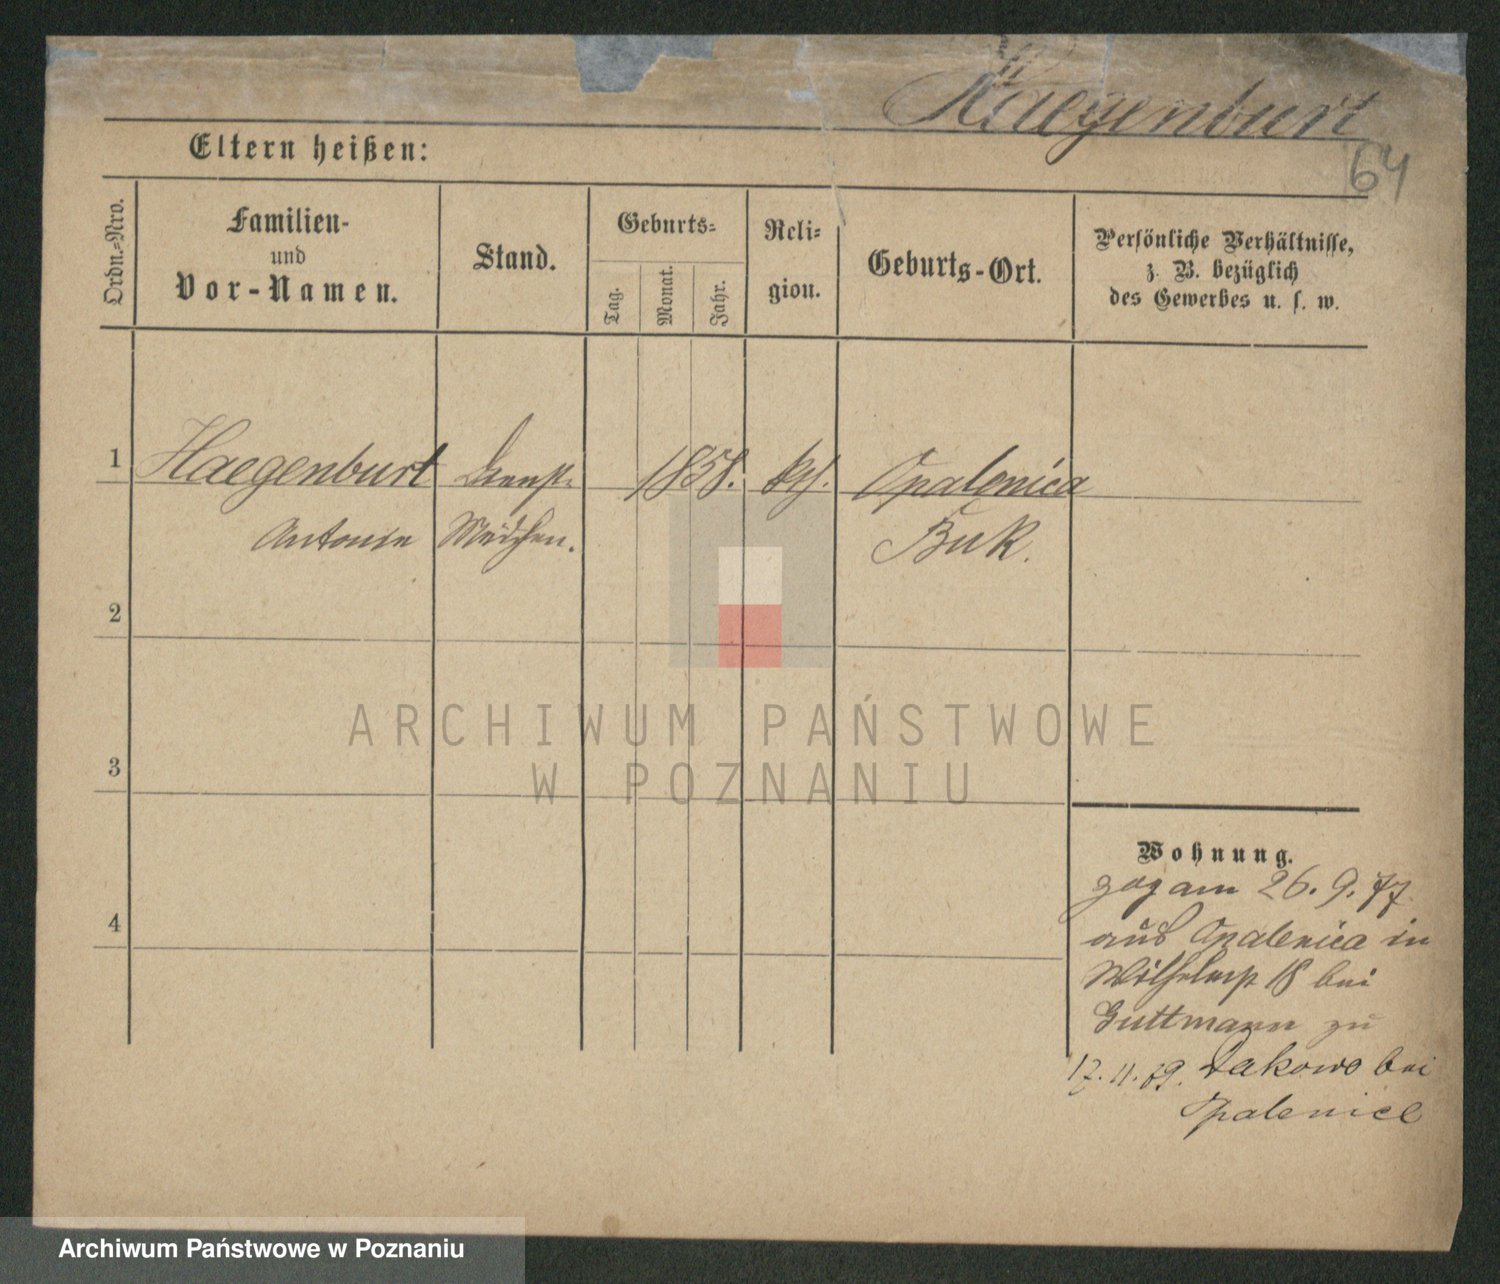 Haegenburt
64
Eltern heißen:
Ordn.-Nro.
Familien-
und
Vor-Namen.
Stand.
Geburts-
Tag.
Monat.
Jahr.
Reli-
gion.
Geburts-Ort.
Persönliche Verhältnisse,
z. B. bezüglich
des Gewerbes u. s. w.
1
Haegenburt
Dienst-
1858.
kth.
Opalenica
Antonie
Mädchen.
Buk.
2
3
4
ARCHIWUM PAŃSTWOWE
W POZNANIU
Wohnung.
zog am 26. 9. 77
aus Opalenica in
Wilhelmsp 18 bei
Guttmann zu
17. 11. 89. Dakowo bei
Opalenice
Archiwum Państwowe w Poznaniu